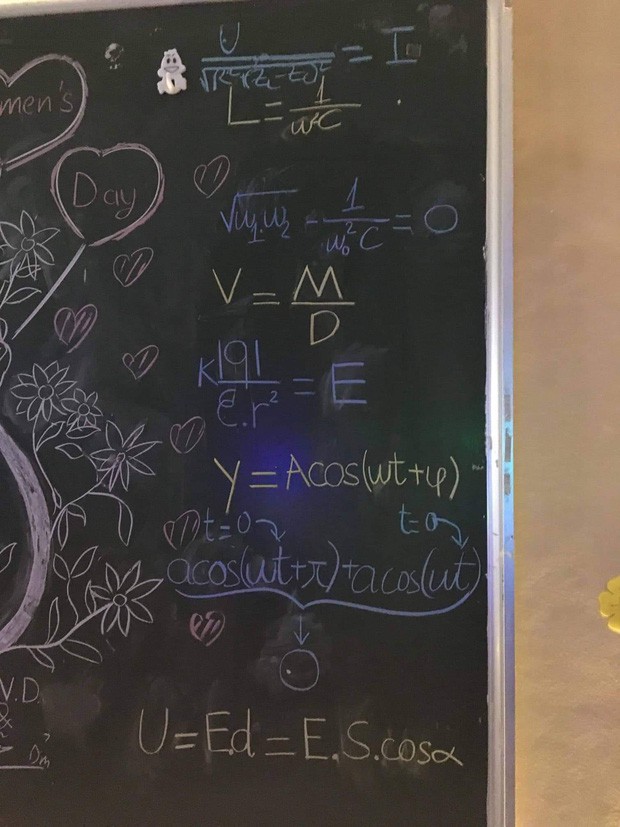 men's
Day
U/√R²+(Z_L-Z_C)² = I
L = 1/ω²C
√ω₁.ω₂ - 1/ω₀²C = 0
V = M/D
K|q|/ε.r² = E
y = Acos(ωt+φ)
t=0 t=0
acos(ωt+π)+acos(ωt)
0
V.D.
U = E.d = E.S.cosα